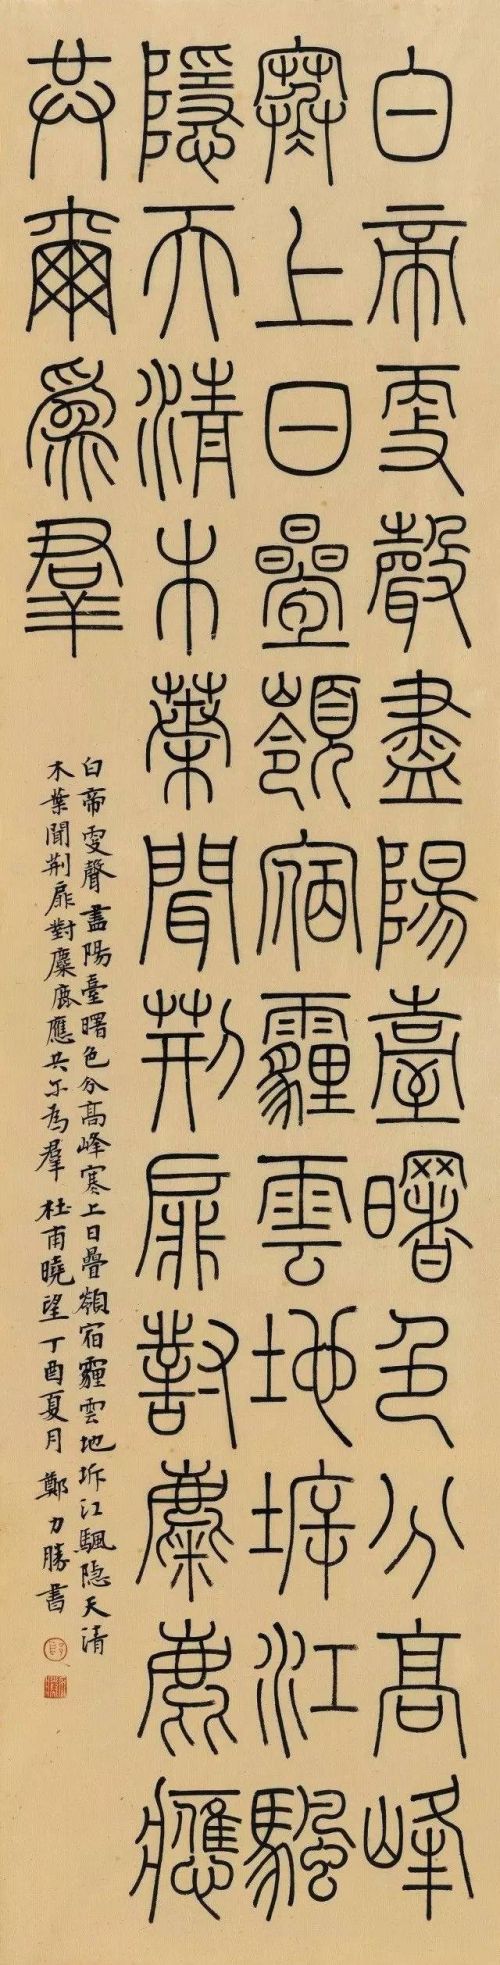 白帝更聲盡陽臺曙色分高峰
寒上日疊嶺宿霾雲地坼江颿
隱天清木葉聞荊扉對麋鹿應
共爾為羣
白帝更聲盡陽臺曙色分高峰寒上日疊嶺宿霾雲地坼江颿隐天清
木葉聞荊扉對麋鹿應共尔為羣 杜甫曉望丁酉夏月 鄭力勝書